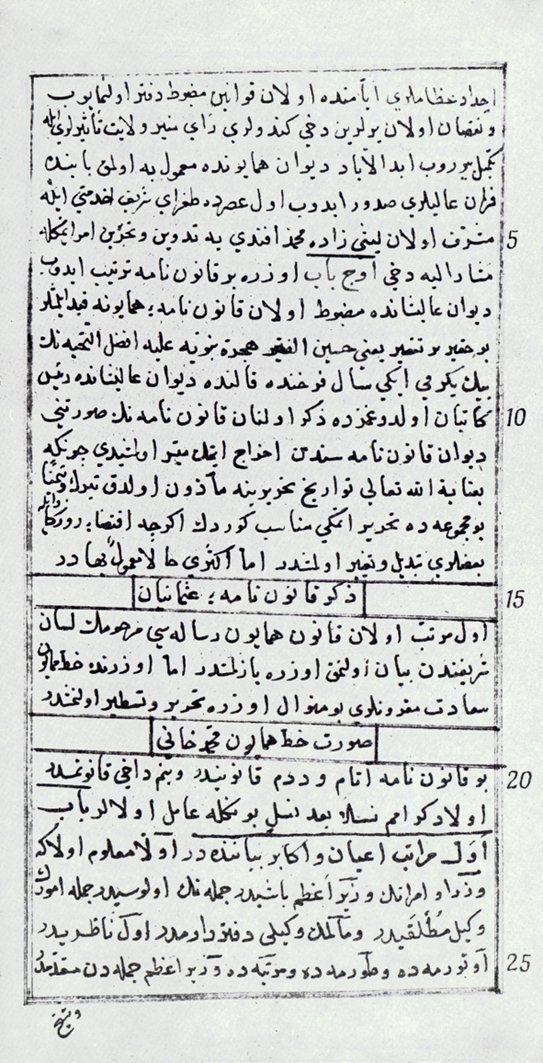 اجداد عظاملری ایامنده اولان قوانین مضبوط دفتر اولنمایوب
و نقصان اولان یرلرین دخی کندولری رأی منیر ولایت تأثیرلری ایله
تکمیل بیوروب ابد الآباد دیوان همایونده معمول به اولمق بابنده
فرمان عالیلری صدور ایدوب اول عصرده طغرای شریف خدمتی ایله
5 مشرف اولان لیثی زاده محمد افندی یه تدوین و تحریرین امر ایتمکله
مشار الیه دخی اوچ باب اوزره بر قانون نامه ترتیب ایدوب
دیوان عالیشانده مضبوط اولان قانون نامهٔ همایونه قید ایتمشلر
بو حقیر پر تقصیر یعنی حسین الفقیر هجرة نبویه علیه افضل التحیه نك
بیك یکرمی ایکی سال فرخنده فالنده دیوان عالیشانده رئیس
10 کاتبان اولدوغمزده ذکر اولنان قانون نامه نك صورتنی
دیوان قانون نامه سندن اخراج ایتمك میسر اولمشیدی چونکه
بعنایة الله تعالی تواریخ تحریرینه مأذون اولدق تبرکا و تیمنا
بو مجموعه ده تحریر ایتمکی مناسب کوردك اکرچه اقتضاء روزکار ایله
بعضلری تبدیل و تغییر اولمشدر اما اکثری حالا معمول بهادر
15 ذکر قانون نامهٔ عثمانیان
اول مرتب اولان قانون همایون رساله سی مرحومك لسان
شریفندن بیان اولنمق اوزره یازلمشدر اما اوزرنده خط همایون
سعادت مقرونلری بو منوال اوزره تحریر و تسطیر اولنمشدر
صورت خط همایون محمد خانی
20 بو قانون نامه اتام و ددم قانونیدر و بنم داخی قانونمدر
اولاد کرامم نسلا بعد نسل بونکله عامل اولالر باب
اول مراتب اعیان و اکابر بیاننده در اولا معلوم اولا که
وزرا و امرانك وزیر اعظم باشیدر جمله نك اولوسیدر جمله امورك
وکیل مطلقیدر و مالمك وکیلی دفتردارمدر اول ناظریدر
25 اوتورمه ده و طورمه ده و مرتبه ده وزیر اعظم جمله دن مقدمدر
و شیخ